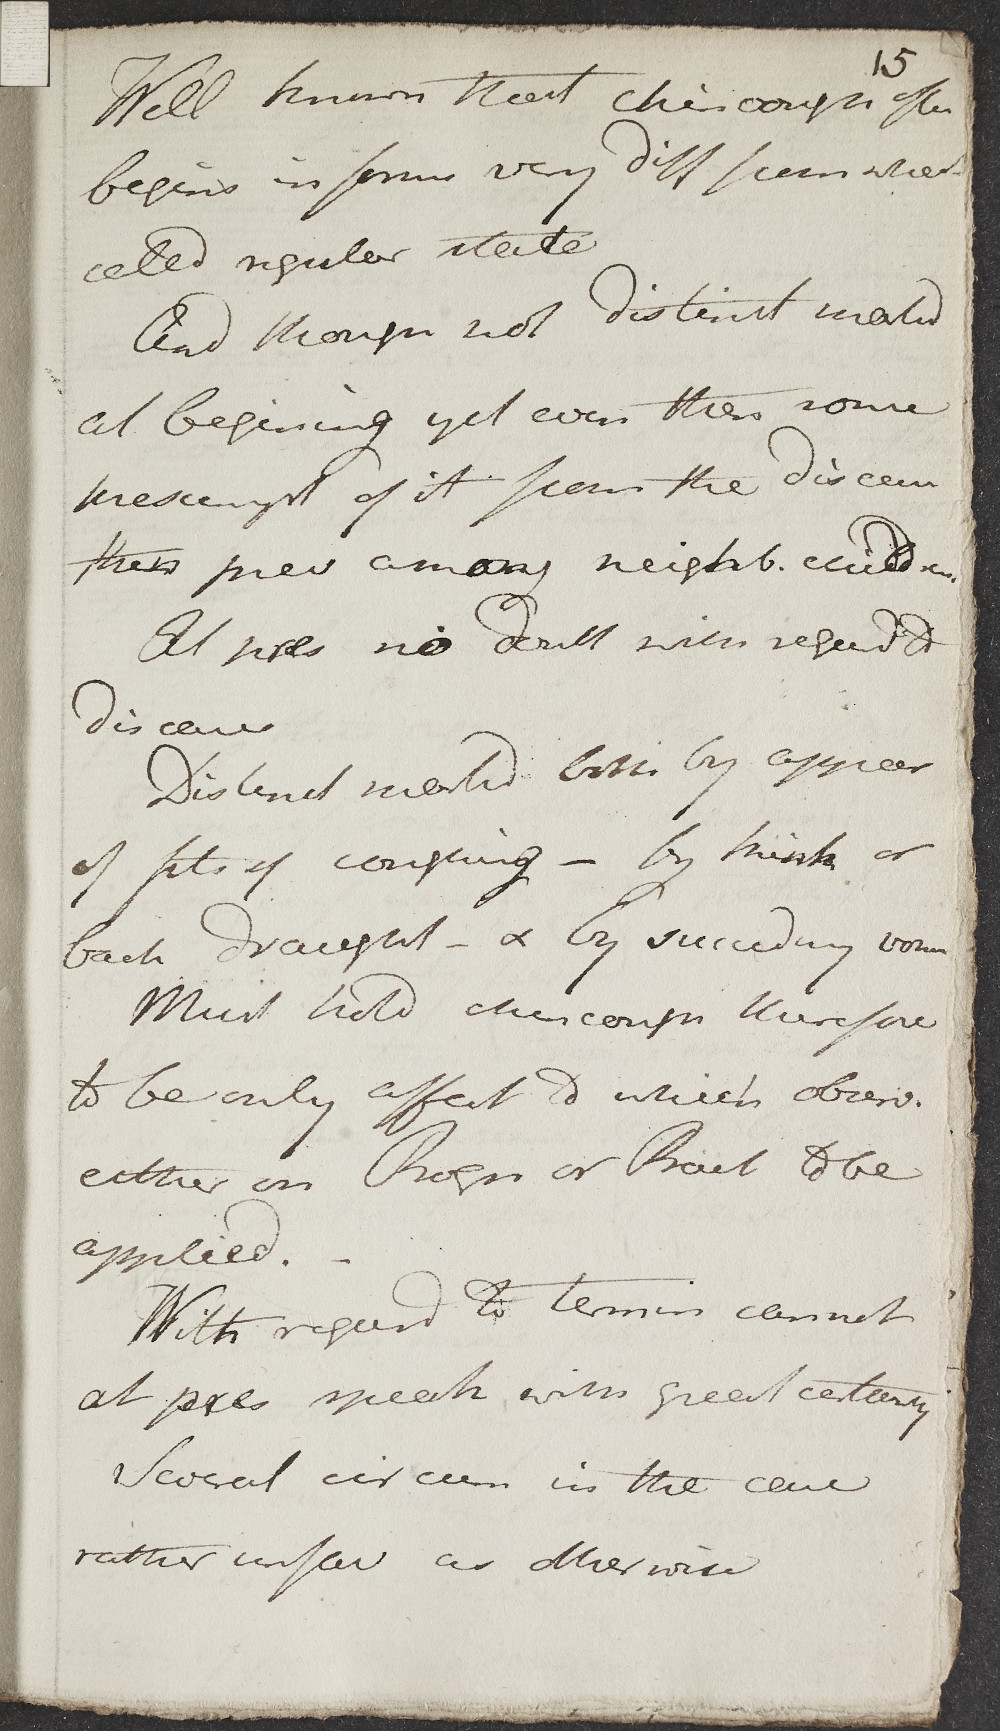 15
Well known that chincough often
begins in form very diff from what
called regular state
And though not distinct markd
at begining yet even then some
presumpt of it from the disease
then prev among neighb. children.
At pres no doubt with regard to
disease
Distinct markd both by appear
of fits of coughing - by kink or
back draught - & by succeeding vom
Must hold chincough therefore
to be only affect to which observ.
either on Progn or Pract to be
applied. -
With regard to termin cannot
at pres speak with great certainty
Several circum in the case
rather unfav as otherwise